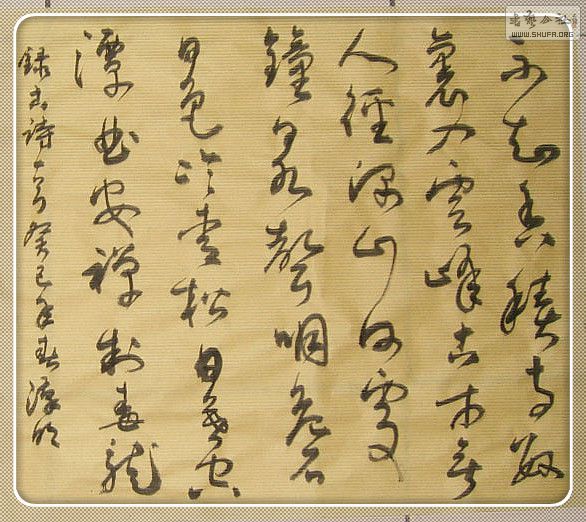 書法公社
WWW.SHUFA.ORG
不知香積寺數
裏入雲峰古木無
人徑深山何處
鐘泉聲咽危石
日色冷青松日暮空
潭曲安禪制毒龍
録古詩一首癸巳年春